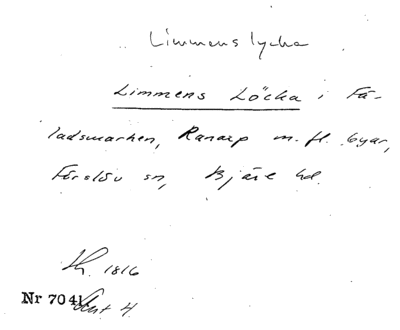 Limmens lycka
Limmens Löcka i Fä-
ladsmarken, Ranarp m. fl. byar,
Förslöv sn, Bjäre hd.
1816
Nr 7041
4